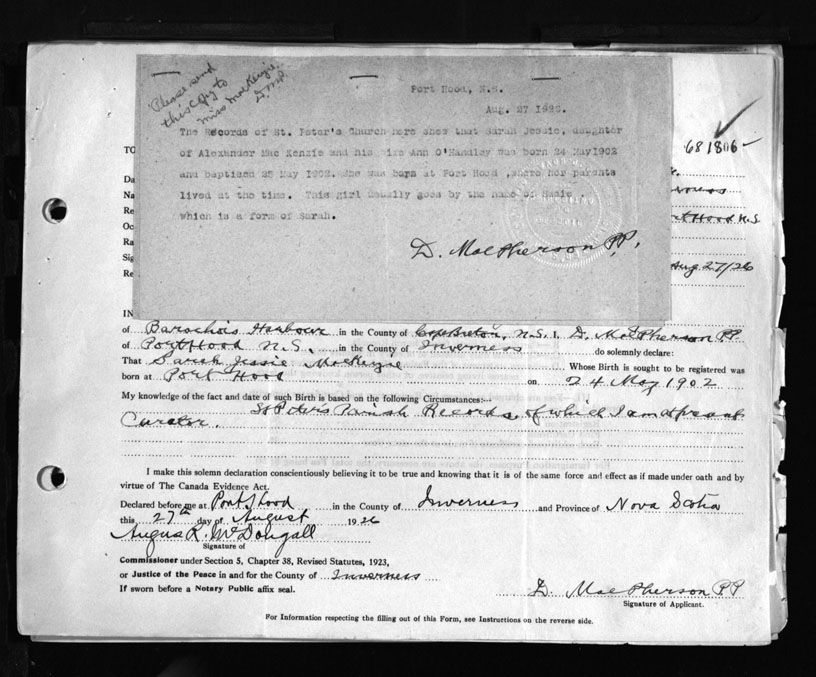 Please send
this copy to
Miss MacKenzie
D. M. P.
Port Hood, N.S.
Aug. 27 1926.
The Records of St. Peter's Church here show that Sarah Jessie, daughter
of Alexander Mac Kenzie and his wife Ann O'Handley was born 24 May 1902
and baptised 25 May 1902. She was born at Port Hood ,where her parents
lived at the time. This girl usually goes by the name of Sadie
which is a form of Sarah.
D. MacPherson P.P.
681806-
TO
Da
Na
Re
Oc
Ra
Sig
Re
Port Hood N.S.
Aug 27/26
IN
of Barachois Harbour in the County of Cape Breton, N.S. I, D. MacPherson PP
of Port Hood N.S. in the County of Inverness do solemnly declare:
That Sarah Jessie MacKenzie Whose Birth is sought to be registered was
born at Port Hood on 24 May 1902
My knowledge of the fact and date of such Birth is based on the following Circumstances:—
St Peter's Parish Records, of which I am at present
Curator.
I make this solemn declaration conscientiously believing it to be true and knowing that it is of the same force and effect as if made under oath and by
virtue of The Canada Evidence Act.
Declared before me at Port Hood in the County of Inverness and Province of Nova Scotia
this 27th day of August 1926
Angus R. McDougall
Signature of
Commissioner under Section 5, Chapter 38, Revised Statutes, 1923,
or Justice of the Peace in and for the County of Inverness
If sworn before a Notary Public affix seal.
D. MacPherson P.P
Signature of Applicant.
For Information respecting the filling out of this Form, see Instructions on the reverse side.